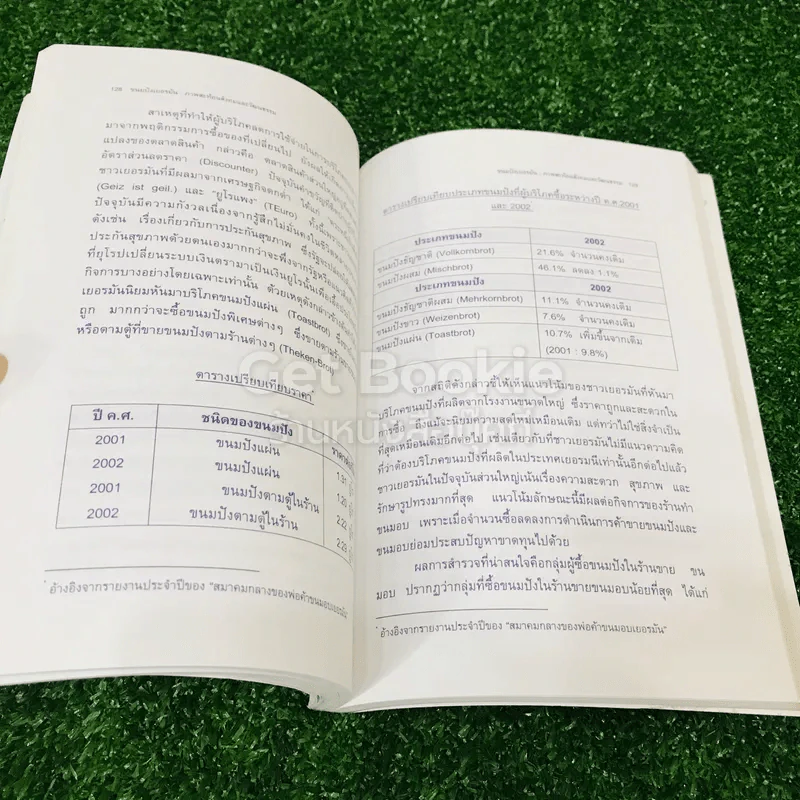 128 ขนมปังเยอรมัน : ภาพสะท้อนสังคมและวัฒนธรรม
สาเหตุที่ทำให้ผู้บริโภคลดการใช้จ่ายในการบริโภค
มาจากพฤติกรรมการซื้อของที่เปลี่ยนไป
แปลงของตลาดสินค้า กล่าวคือ ตลาดสินค้าส่วนใหญ่
อัตราส่วนลดราคา (Discounter) ปัจจุบันคำขวัญที่
ชาวเยอรมันที่มีผลมาจากเศรษฐกิจตกต่ำ ได้แก่
(Geiz ist geil.) และ "ยูโรแพง" (TEuro) ทั้งนี้เพราะ
ปัจจุบันมีความกังวลเนื่องจากรู้สึกไม่มั่นคงในชีวิต
ดังเช่น เรื่องเกี่ยวกับการประกันสุขภาพ ซึ่งรัฐจะ
ประกันสุขภาพด้วยตนเองมากกว่าจะพึ่งจากรัฐหรือ
ที่ยุโรปเปลี่ยนระบบเงินตรามาเป็นเงินยูโรนั้นเพื่อเอื้อ
กิจการบางอย่างโดยเฉพาะเท่านั้น ด้วยเหตุดังกล่าวข้างต้น
เยอรมันนิยมหันมาบริโภคขนมปังแผ่น (Toastbrot) ซึ่ง
ถูก มากกว่าจะซื้อขนมปังพิเศษต่างๆ ซึ่งขายตาม
หรือตามตู้ที่ขายขนมปังตามร้านต่างๆ (Theken-Brot)
ตารางเปรียบเทียบราคา*
ปี ค.ศ. ชนิดของขนมปัง
2001 ขนมปังแผ่น 1.31
2002 ขนมปังแผ่น 1.20
2001 ขนมปังตามตู้ในร้าน 2.22
2002 ขนมปังตามตู้ในร้าน 2.25
* อ้างอิงจากรายงานประจำปีของ "สมาคมกลางของพ่อค้าขนมอบเยอรมัน
ขนมปังเยอรมัน : ภาพสะท้อนสังคมและวัฒนธรรม 129
ตารางเปรียบเทียบประเภทขนมปังที่ผู้บริโภคซื้อระหว่างปี ค.ศ.2001
และ 2002*
ประเภทขนมปัง 2002
ขนมปังธัญชาติ (Vollkornbrot) 21.6% จำนวนคงเดิม
ขนมปังผสม (Mischbrot) 46.1% ลดลง 1.1%
ประเภทขนมปัง 2002
ขนมปังธัญชาติผสม (Mehrkornbrot) 11.1% จำนวนคงเดิม
ขนมปังขาว (Weizenbrot) 7.6% จำนวนคงเดิม
ขนมปังแผ่น (Toastbrot) 10.7% เพิ่มขึ้นจากเดิม
(2001 : 9.8%)
จากสถิติดังกล่าวชี้ให้เห็นแนวโน้มของชาวเยอรมันที่หันมา
บริโภคขนมปังที่ผลิตจากโรงงานขนาดใหญ่ ซึ่งราคาถูกและสะดวกใน
การซื้อ ถึงแม้จะนิยมความสดใหม่เหมือนเดิม แต่ทว่าไม่ใช่สิ่งจำเป็น
ที่สุดเหมือนเดิมอีกต่อไป เช่นเดียวกับที่ชาวเยอรมันไม่มีแนวความคิด
ที่ว่าต้องบริโภคขนมปังที่ผลิตในประเทศเยอรมนีเท่านั้นอีกต่อไปแล้ว
ชาวเยอรมันในปัจจุบันส่วนใหญ่เน้นเรื่องความสะดวก สุขภาพ และ
รักษารูปทรงมากที่สุด แนวโน้มลักษณะนี้มีผลต่อกิจการของร้านทำ
ขนมอบ เพราะเมื่อจำนวนซื้อลดลงการดำเนินการค้าขายขนมปังและ
ขนมอบย่อมประสบปัญหาขาดทุนไปด้วย
ผลการสำรวจที่น่าสนใจคือกลุ่มผู้ซื้อขนมปังในร้านขาย ขน
มอบ ปรากฏว่ากลุ่มที่ซื้อขนมปังในร้านขายขนมอบน้อยที่สุด ได้แก่
* อ้างอิงจากรายงานประจำปีของ "สมาคมกลางของพ่อค้าขนมอบเยอรมัน"
Get Bookie
ร้านหนังสือเก็ทบุ๊กกี้